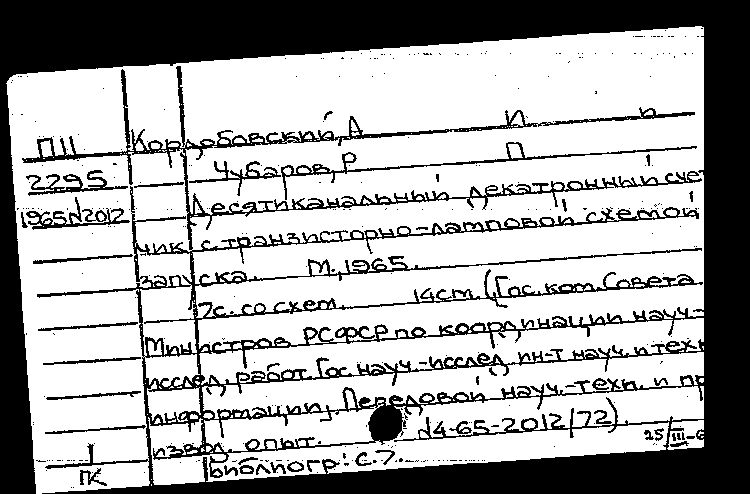 ПII Кордобовский, А И п
2295 Чубаров, Р П
1965 №2012 Десятиканальный декатронный счет
чик с транзисторно-ламповой схемой
запуска. М., 1965.
7с. со схем. 14 см. (Гос. ком. Совета
Министров РСФСР по координации науч.-
исслед. работ. Гос. науч.-исслед. ин-т науч. и техн.
информации, Передовой науч.-техн. и пр
извод. опыт. №4-65-2012/72).
1 25/III-6
ПК Библиогр: с.7.